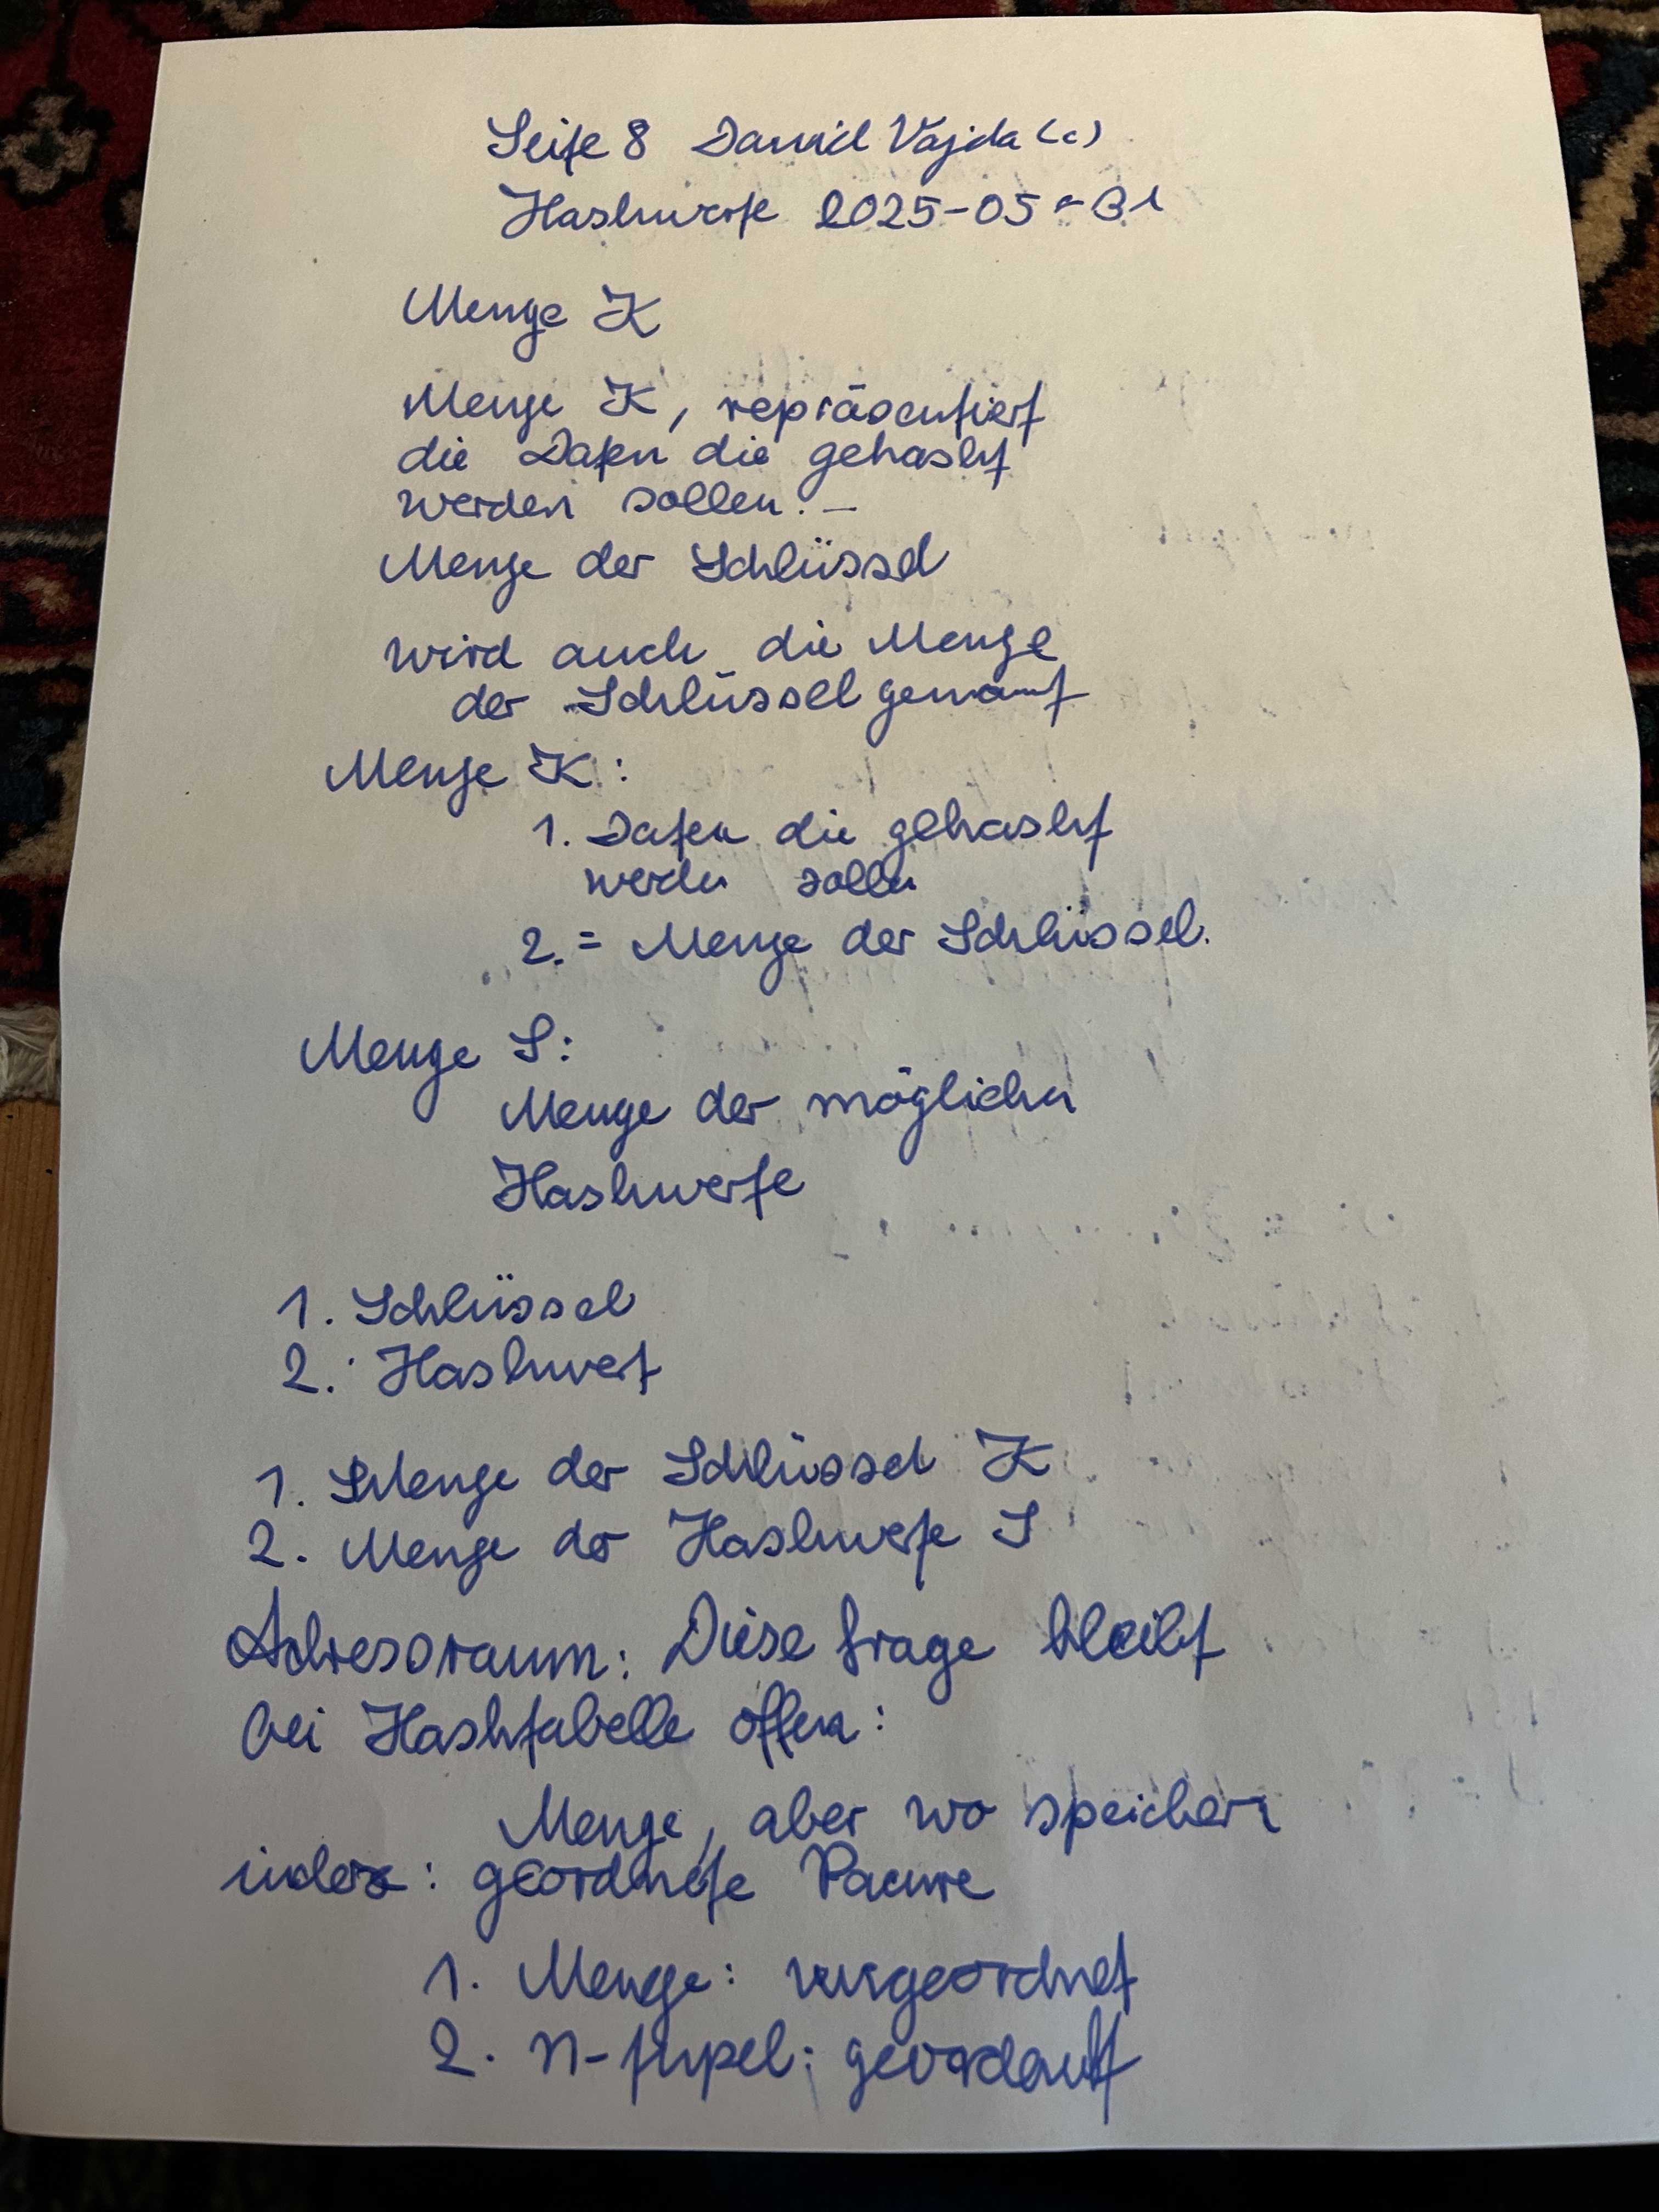 Seite 8 David Vajda (c)
Hashwerte 2025-05-31
Menge K
Menge K, repräsentiert
die Daten die gehasht
werden sollen. -
Menge der Schlüssel
wird auch die Menge
der Schlüssel genannt
Menge K:
1. Daten die gehasht
werden sollen
2. = Menge der Schlüssel.
Menge S:
Menge der möglichen
Hashwerte
1. Schlüssel
2. Hashwert
1. Menge der Schlüssel K
2. Menge der Hashwerte S
Adressraum: Diese Frage bleibt
bei Hashtabelle offen:
Menge, aber wo speichern
index: geordnete Paare
1. Menge: ungeordnet
2. n-tupel: geordnet